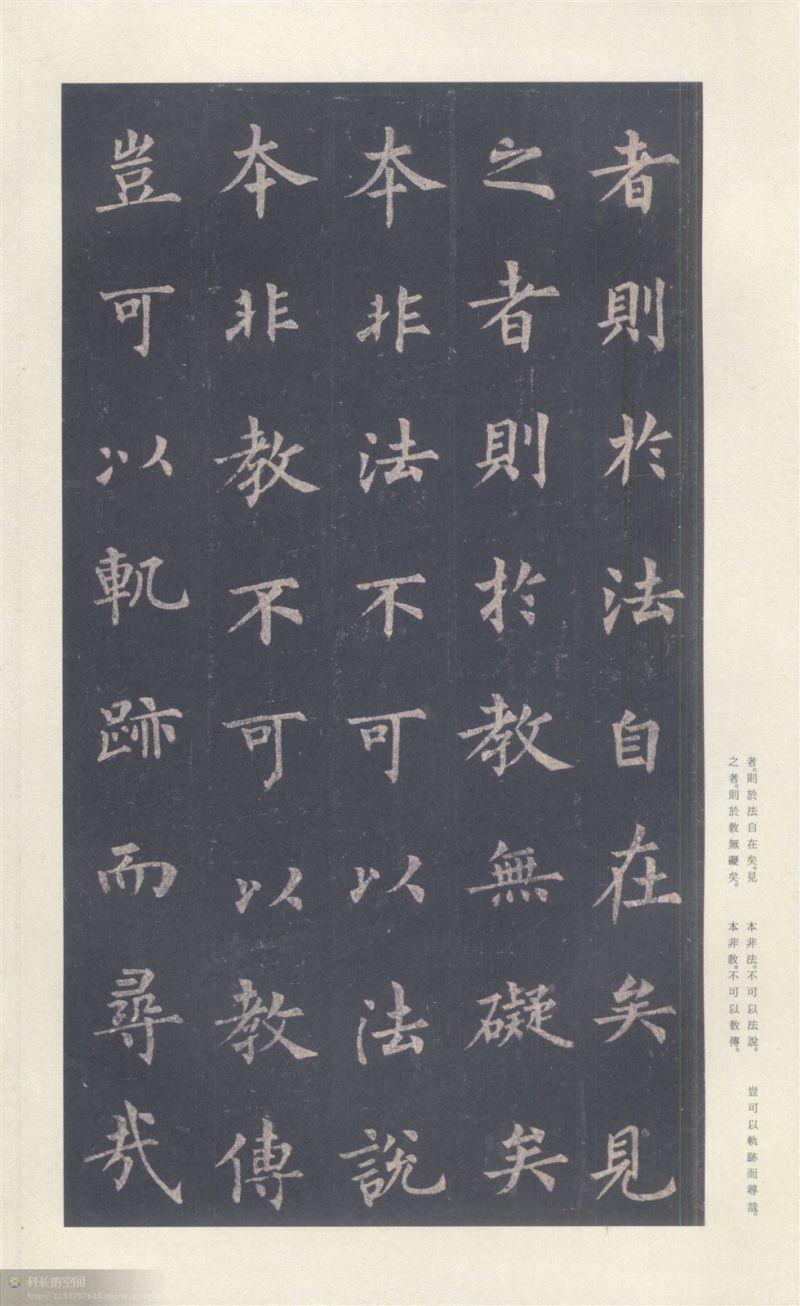 者則於法自在矣見
之者則於教無礙矣
本非法不可以法說
本非教不可以教傳
豈可以軌跡而尋哉
者。則於法自在矣。見
之者。則於教無礙矣。
本非法。不可以法說。
本非教。不可以教傳。
豈可以軌跡而尋哉。
科长的空间